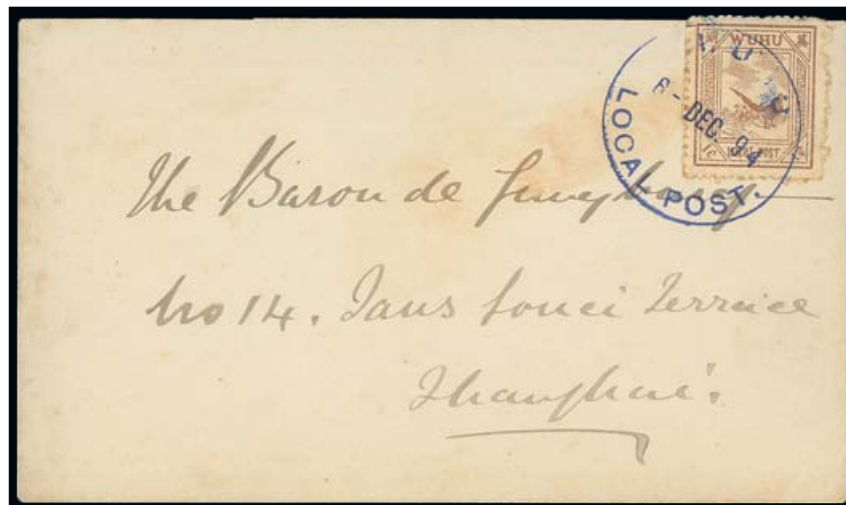 WUHU
6 - DEC. 94
LOCAL POST.
The Baron de
No 14. Sans Souci Terrace
Shanghai.